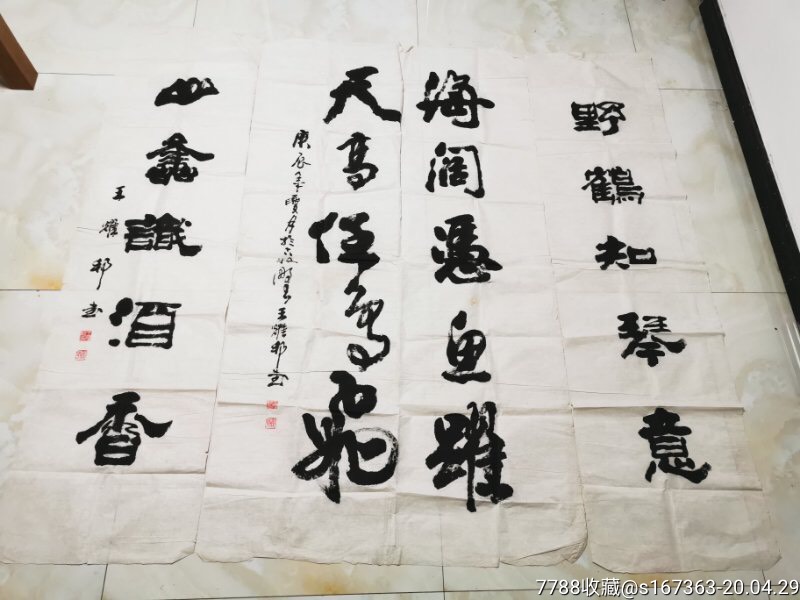 野鶴知琴意
海闊憑魚躍
天高任鸟飛
庚辰年夏月於王耀邦书
山禽識酒香
王耀邦书
7788收藏@s167363-20.04.29